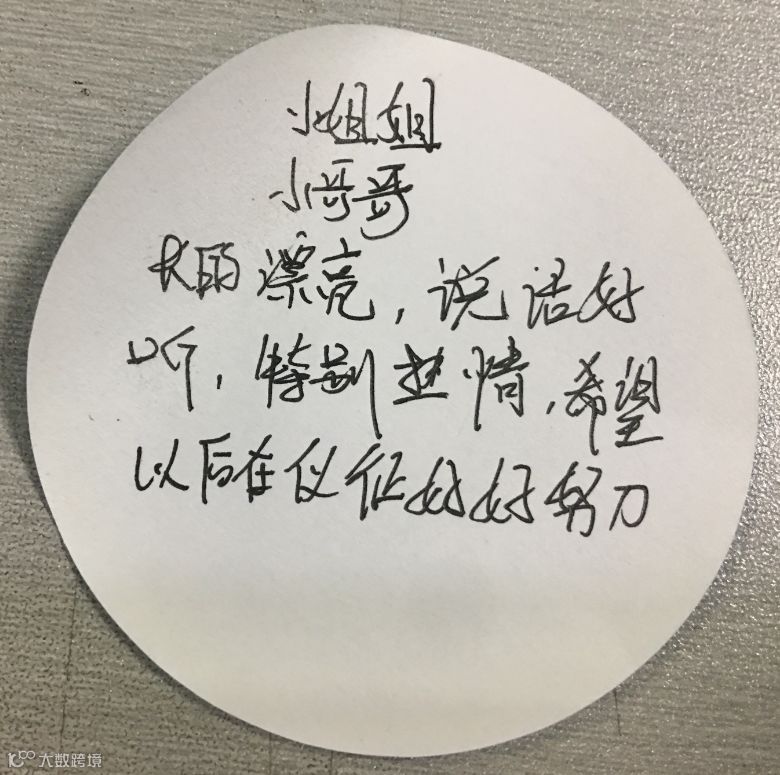 小姐姐
小哥哥
长的漂亮,说话好
听,特别热情,希望
以后在仪征好好努力
大数跨境